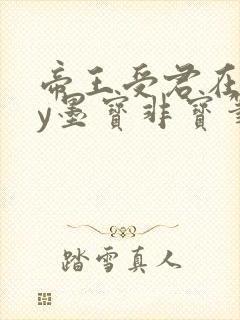 帝王受君在
y墨宝非宝
踏雪真人